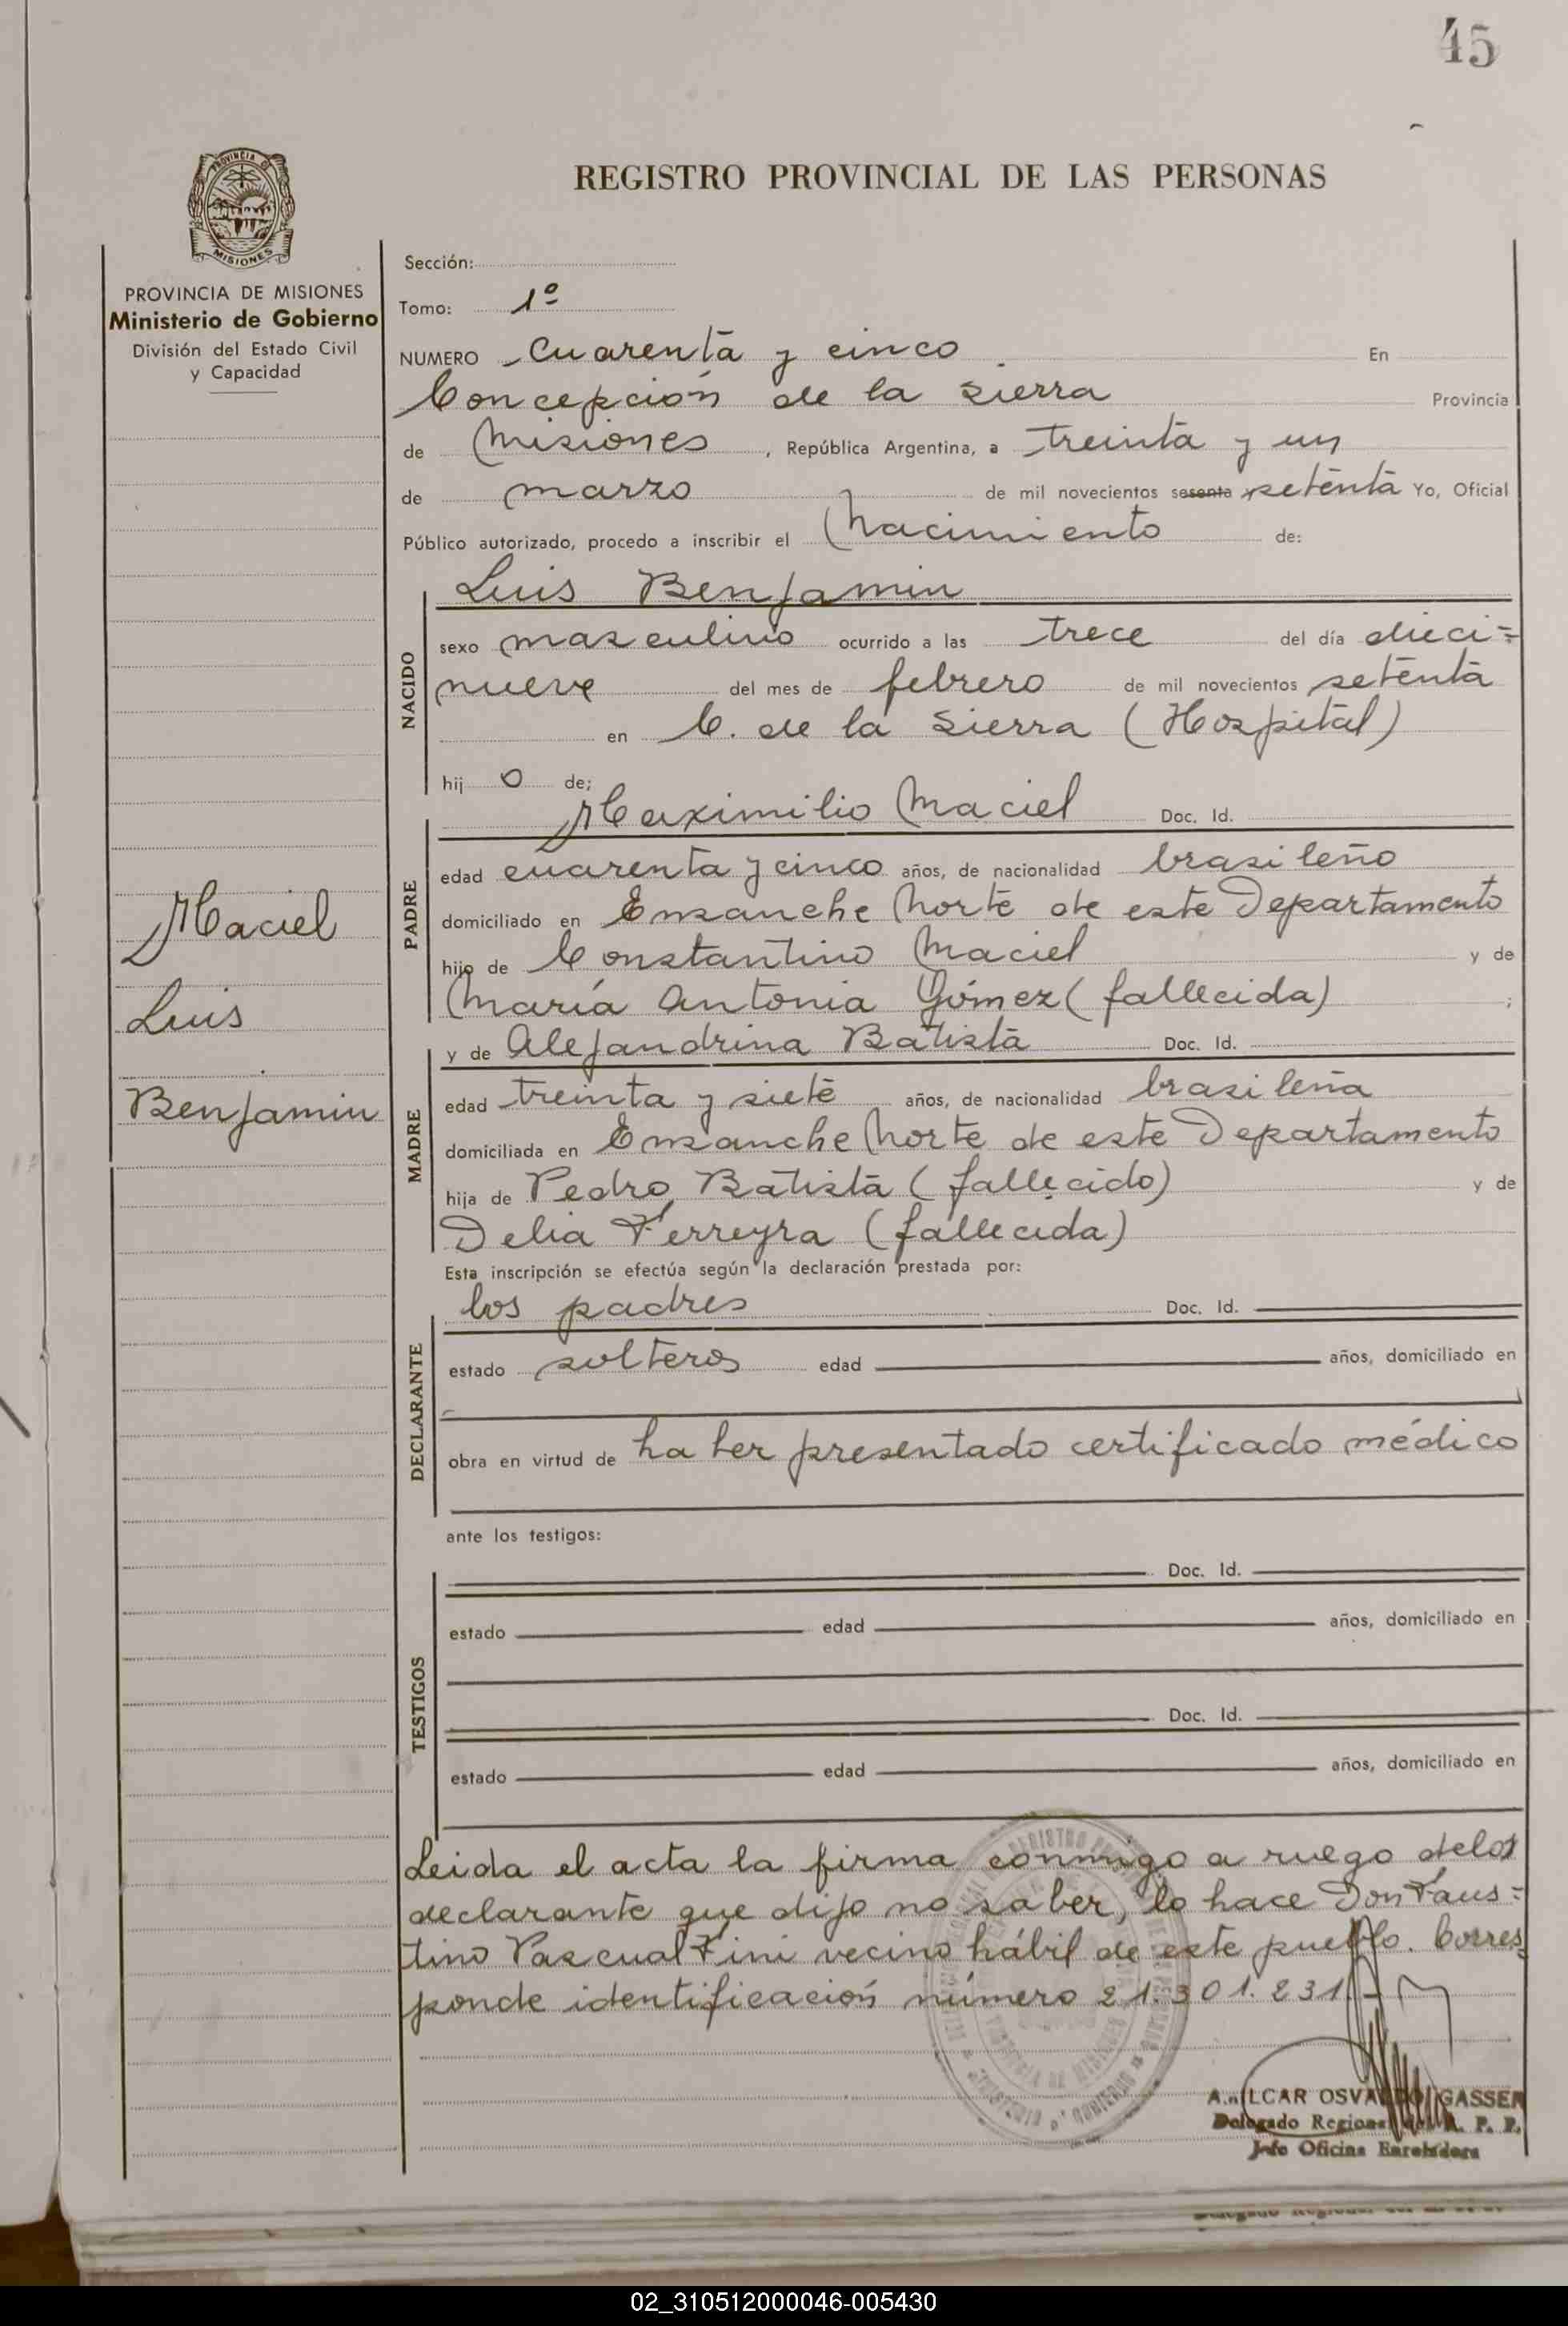 45
REGISTRO PROVINCIAL DE LAS PERSONAS
PROVINCIA DE MISIONES
Ministerio de Gobierno
División del Estado Civil
y Capacidad
Maciel
Luis
Benjamin
Sección:
Tomo: 1º
NUMERO Cuarenta y cinco En
Concepción de la Sierra Provincia
de Misiones, República Argentina, a treinta y un
de marzo de mil novecientos sesenta setenta Yo, Oficial
Público autorizado, procedo a inscribir el Nacimiento de:
Luis Benjamin
NACIDO
sexo masculino ocurrido a las trece del día dieci=
nueve del mes de febrero de mil novecientos setenta
en C. de la Sierra (Hospital)
hijo de;
PADRE
Maximilio Maciel Doc. Id.
edad cuarenta y cinco años, de nacionalidad brasileño
domiciliado en Ensanche Norte de este Departamento
hijo de Constantino Maciel y de
María Antonia Gómez (fallecida) ;
MADRE
y de Alejandrina Batista Doc. Id.
edad treinta y siete años, de nacionalidad brasileña
domiciliada en Ensanche Norte de este Departamento
hija de Pedro Batista (fallecido) y de
Delia Ferreyra (fallecida)
Esta inscripción se efectúa según la declaración prestada por:
DECLARANTE
los padres Doc. Id.
estado solteros edad años, domiciliado en
obra en virtud de haber presentado certificado médico
ante los testigos:
TESTIGOS
Doc. Id.
estado edad años, domiciliado en
Doc. Id.
estado edad años, domiciliado en
Leida el acta la firma conmigo a ruego delos
declarante que dijo no saber, lo hace Don Faus=
tino Pascual Fini vecino hábil de este pueblo. Corres
ponde identificación número 21.301.231.
OSVALDO GASSER
Delegado Regional del R. P. P.
Jefe Oficina Enroladora
02_310512000046-005430